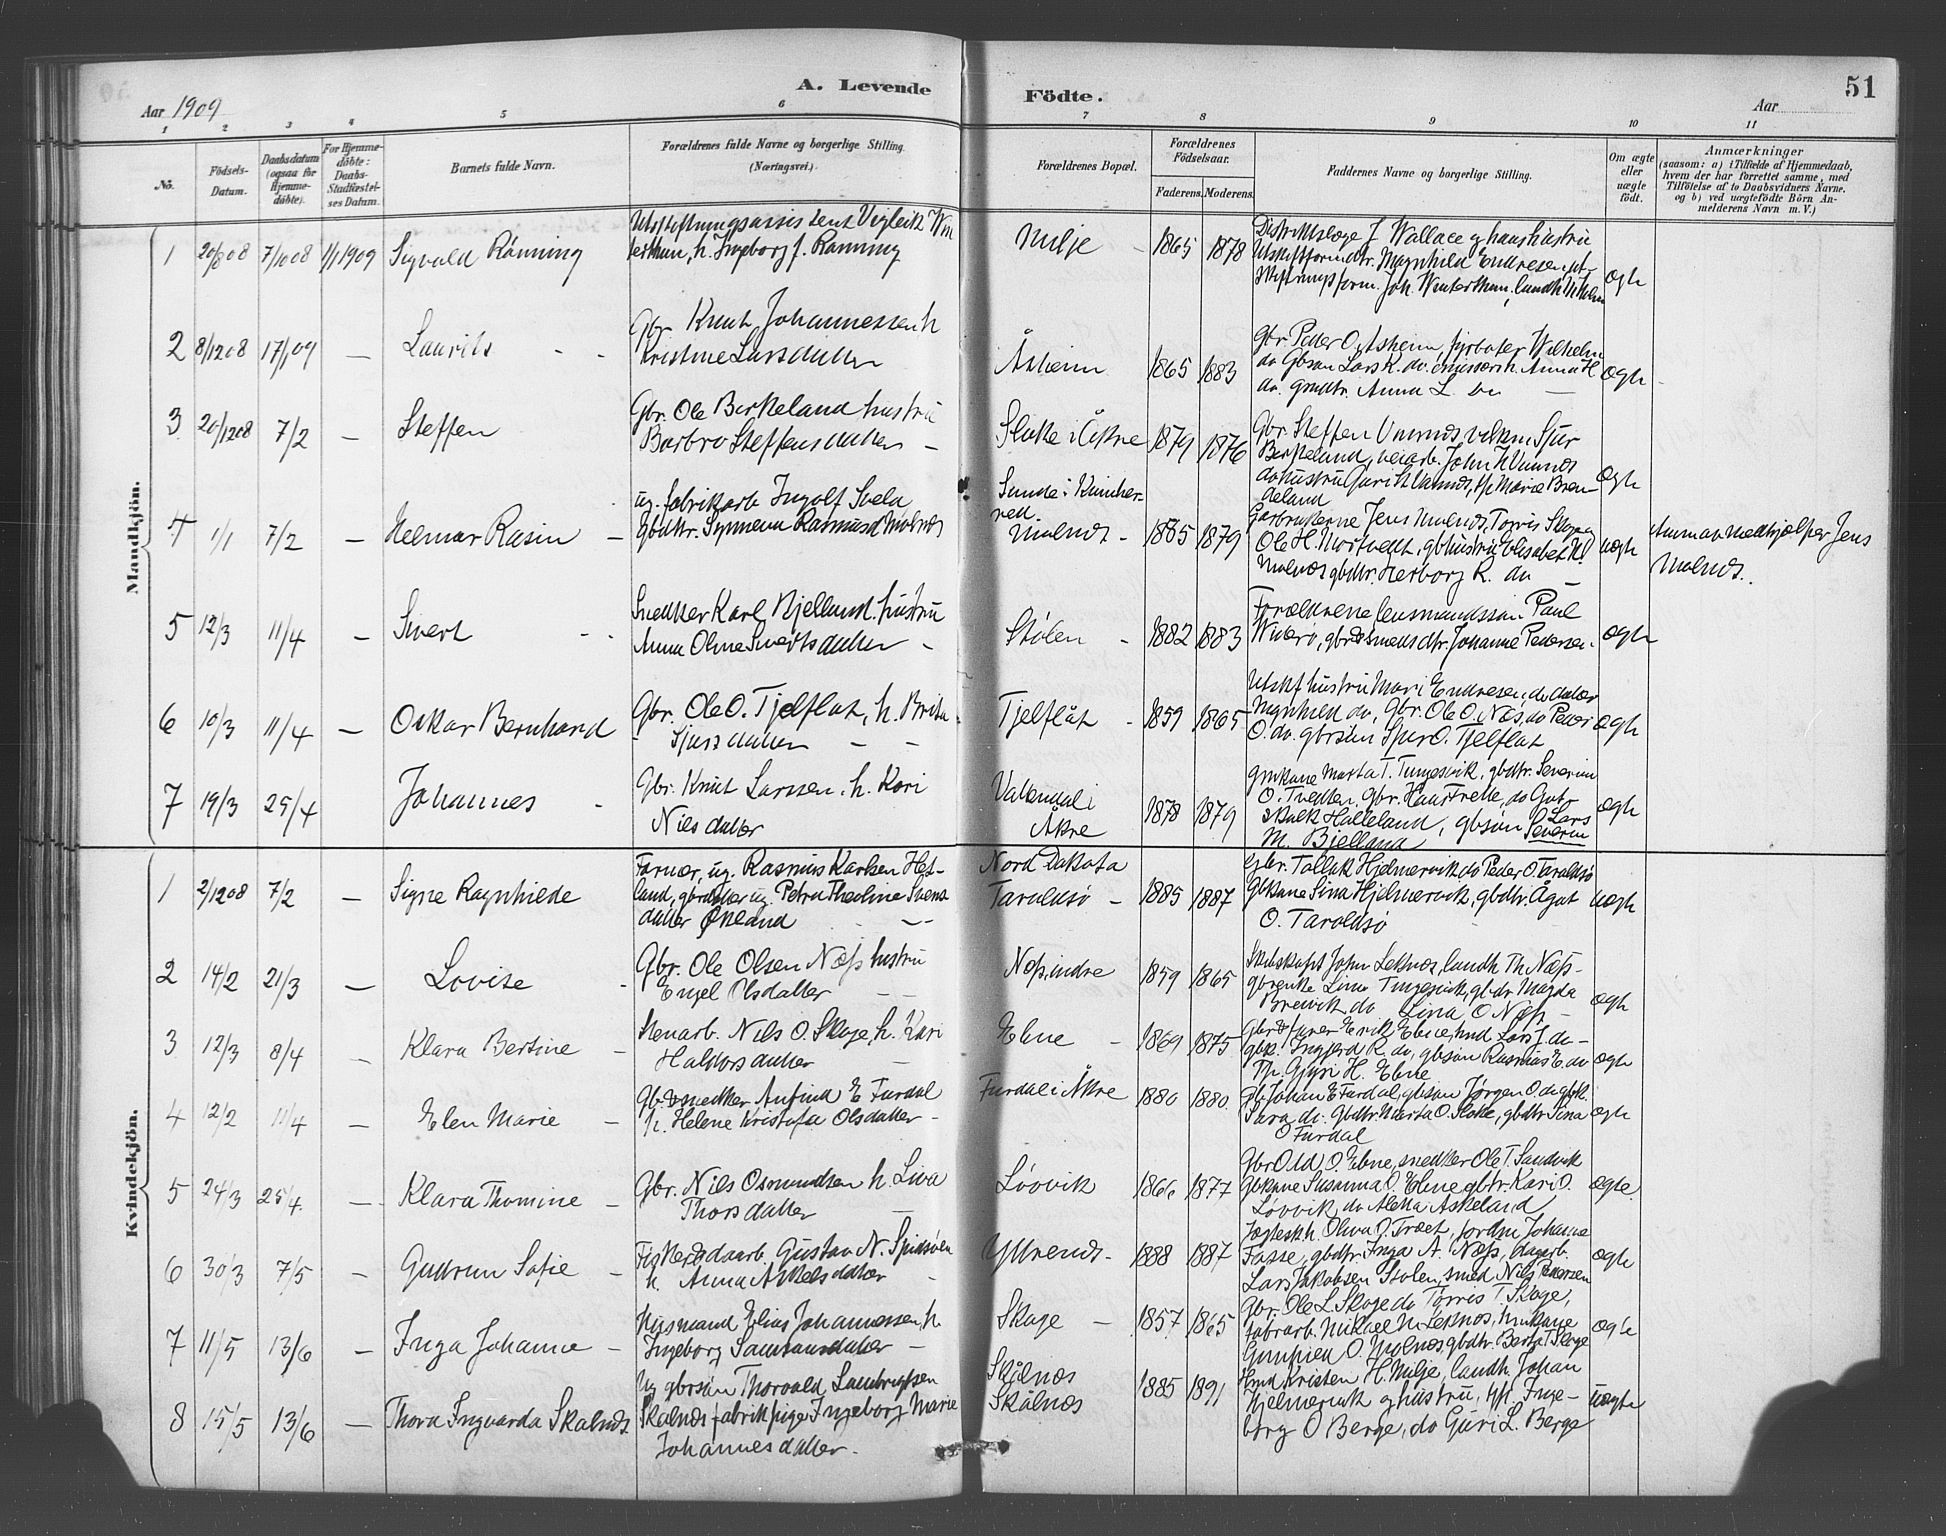 A. Levende Födte.
51
Aar 1909
Aar
1 2 3 4 5 6 7 8 9 10 11
No.
Födsels-Datum.
Daabsdatum (ogsaa for Hjemme-döbte).
For Hjemme-döbte: Daabs-Stadfæstel-ses Datum.
Barnets fulde Navn.
Forældrenes fulde Navne og borgerlige Stilling. (Næringsvei.)
Forældrenes Bopæl.
Forældrenes Födselsaar.
Faderens. Moderens.
Faddernes Navne og borgerlige Stilling.
Om ægte eller uægte födt.
Anmærkninger
(saasom: a) i Tilfælde af Hjemmedaab, hvem der har forrettet samme, med Tilföielse af to Daabsvidners Navne. og b) ved uægtefödte Börn Anmelderens Navn m. V.)
Mandkjön.
1 20/8 08 7/10 08 1/1 1909 Sigvald Rönning
Utskiftningsassistent Vigleik Win
terthun, h. Ingeborg f. Rönning
Milje - 1865 1878
Distriktslæge J Wallace og hans hustru
Utskiftformdtr. Magnhild Endresen, ut-
skiftningsform. Joh. Winterthun, landh.
ægte
2 8/12 08 17/1 09 — Laurits
Gbr. Knut Johannessen h
Kristine Larsdatter
Åsheim 1865 1883
Gbr. Peder O. Åsheim, fyrbøter Wilhelm
do Gbsøn Lars K. do, h. Anna H
do. grdmdtr. Anna L. do —
ægte
3 20/12 08 7/2 — Steffen
Gbr. Ole Birkeland hustru
Barbro Steffensdatter —
Slokke i Åkre 1879 1876
Gbr. Steffen Unnnes, Sjur
Birkeland, veiarb. John H Unnnes
do hustru Guri St. Unnnes, tp Marie Bren-
deland
ægte
4 1/1 7/2 — Helmer Rasin —
ug. fabrikarb Ingolf Svela
gbdtr. Synneva Rasmusd Molnes
Sunde i Kvinher-
red
Molnes - 1885 1879
Garbrukerne Jens Molnes, Torris Skoge
Ole H. Nortvedt, gb hustru Elisabet N.
Molnes gbdtr. Herborg R. do —
uægte
Anm av medhjælper Jens
Molnes.
5 12/3 11/4 — Sivert
Snedker Karl Bjelland, hustru
Anna Oline Sivertsdatter -
Stølen - 1882 1883
Forældrene lensmandssøn Paul
Widerø, gbr & smeds dtr. Johanne Pedersen.
ægte
6 10/3 11/4 — Oskar Bernhard
Gbr. Ole O. Tjelflat, h. Brita
Sjursdatter — —
Tjelflåt - 1859 1865
Utskf hustru Mari Endresen, do datter
Magnhild do, Gbr. Ole O. Næs, do Peder
O. do. gbrsøn Sjur O. Tjelflat
ægte
7 19/3 25/4 Johannes -
Gbr. Knut Larssen. h. Kari
Nilsdatter
Valendal i
Åkre 1878 1879
Gmkane Marta T. Tungesvik, gbdtr. Severine
O. Tvedten, Gbr. Hans Trette, do Gut-
skalk Halleland, gbsøn Lars
M. Bjelland Severin
ægte
Kvindekjön.
1 2/12 08 7/2 — Signe Ragnhilde
Farmer, ug. Rasmus Karlsen Het-
land, gbrdatter ug. Petra Theoline Svens
datter Økland — —
Nord Dakota
Taroldsø — 1885 1887
Gbr. Tallak Hjelmervik do Peder O. Taroldsø
Gbkane Sina Hjelmervik, gbdtr. Ågot
O. Taroldsø
uægte
2 14/2 21/3 — Lovise
Gbr. Ole Olsen Næss hustru
Engel Olsdatter — —
Næss, indre 1859 1865
Skibskapt John Leknes, landh. Th. Næss-
gbrenke Lina Tungesvik, gbdtr. Magda
Breivik do Lina O Næss —
ægte
3 12/3 8/4 Klara Bertine —
Stenarb. Nils O. Skoge, h. Kari
Haldorsdatter —
Ebne - 1869 1875
Gbr & furer Erik Ebne, hmd Lars J. do-
gbk. Ingjerd R. do, gbsøn Rasmus E do
Tp. Gyri H. Ebne
ægte
4 12/2 11/4 — Elen Marie —
Gb & snedker Anfind E Furdal
h. Helene Kristofa Olsdatter —
Furdal i Åkre 1880 1880
Gb Johan E Furdal, gbsøn Jørgen O. do, gbk.
Sara do. Gbdtr. Marta O. Slokke, gbdtr Sina
O Furdal
ægte
5 24/3 25/4 — Klara Thomine —
Gbr. Nils Osmundsen h. Liva
Thorsdatter —
Løvvik 1866 1877
Gbr Odd O. Ebne, snedker Ole T. Sandvik
Gbkane Susanna O. Ebne, gbtr. Kari O.
Løvvik, do Aletta Askeland
ægte
6 30/3 7/5 — Gudrun Sofie —
Fisker & daarb. Gustav N. Spidsøen
h. Anna Askelsdatter
Yttrenes - 1888 1887
Jægteskh. Oliva O. Træet, jordm Johanne
Fasse, gbdtr. Inga A. Næss, dagarb.
Lars Jakobsen Stolen, smed Nils Pedersen
ægte
7 11/5 13/6 — Inga Johanne —
Husmand Elias Johannessen, h.
Ingeborg Samsonsdatter —
Skoge — 1857 1865
Gbr. Ole L. Skoge do Torris T. Skoge,
fabrarb. Mikael M. Leknes, hmkane
Gunhild O. Molnes, gbdtr. Berta T. Skoge
ægte
8 15/5 13/6 — Thora Ingvarda Skålnes.
Ug gbrsøn Thorvald Lambrigtsen
Skålnes fabrikpige Ingeborg Marie
Johannesdatter.
Skålnes
Skålnes 1885 1891
Hmd Kristen H. Milje, landh. Johan
Hjelmervik og hustru, tp. Inge-
borg O Berge, do Guri L. Berge
uægte